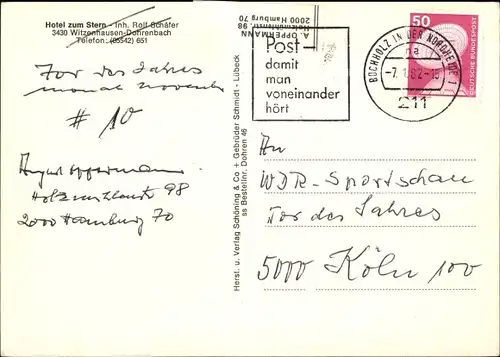 Hotel zum Stern - Inh. Rolf Schäfer
3430 Witzenhausen-Dohrenbach
Telefon: (05542) 651
A. OPPERMANN
98
2000 Hamburg 70
Post-
damit
man
voneinander
hört
BUCHHOLZ IN DER NORDHEIDE 1
na
-7.1.82-15
2110
50
DEUTSCHE BUNDESPOST
Tor des Jahres
monat november
# 10
August Oppermann
98
2000 Hamburg 70
Herst. u. Verlag Schöning & Co + Gebrüder Schmidt - Lübeck
ss Bestellnr. Dohren 46
An
WDR - Sportschau
Tor des Jahres
5000 Köln 100